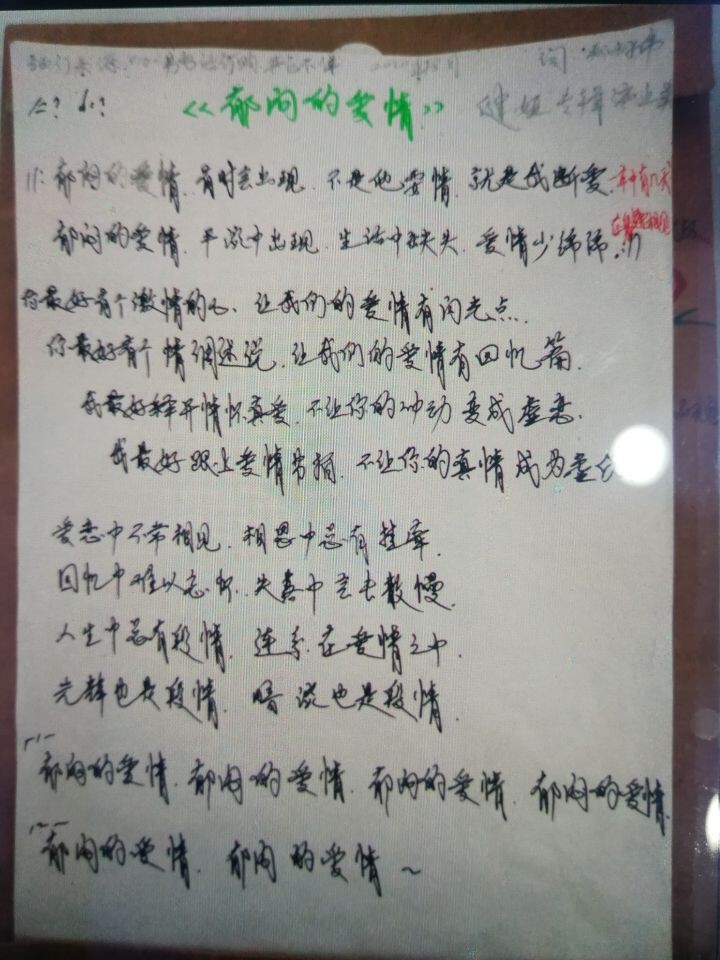 《郁闷的爱情》
郁闷的爱情.有时会出现.不是他要情.就是我断爱.
郁闷的爱情.平淡中出现.生活中缺失.爱情少绵绵.
你最好有个激情的心.让我们的爱情有闪光点.
你最好有个情调述说.让我们的爱情有回忆篇.
我最好释开情怀真爱.不让你的冲动变成虚恋.
我最好跟上爱情节拍.不让你的真情成为
爱恋中不常相见.相思中总有挂牵.
回忆中难以忘怀.失落中散慢.
人生中总有段情.连系在爱情之中.
光辉也是段情.暗淡也是段情.
郁闷的爱情.郁闷的爱情.郁闷的爱情.郁闷的爱情.
郁闷的爱情.郁闷的爱情~